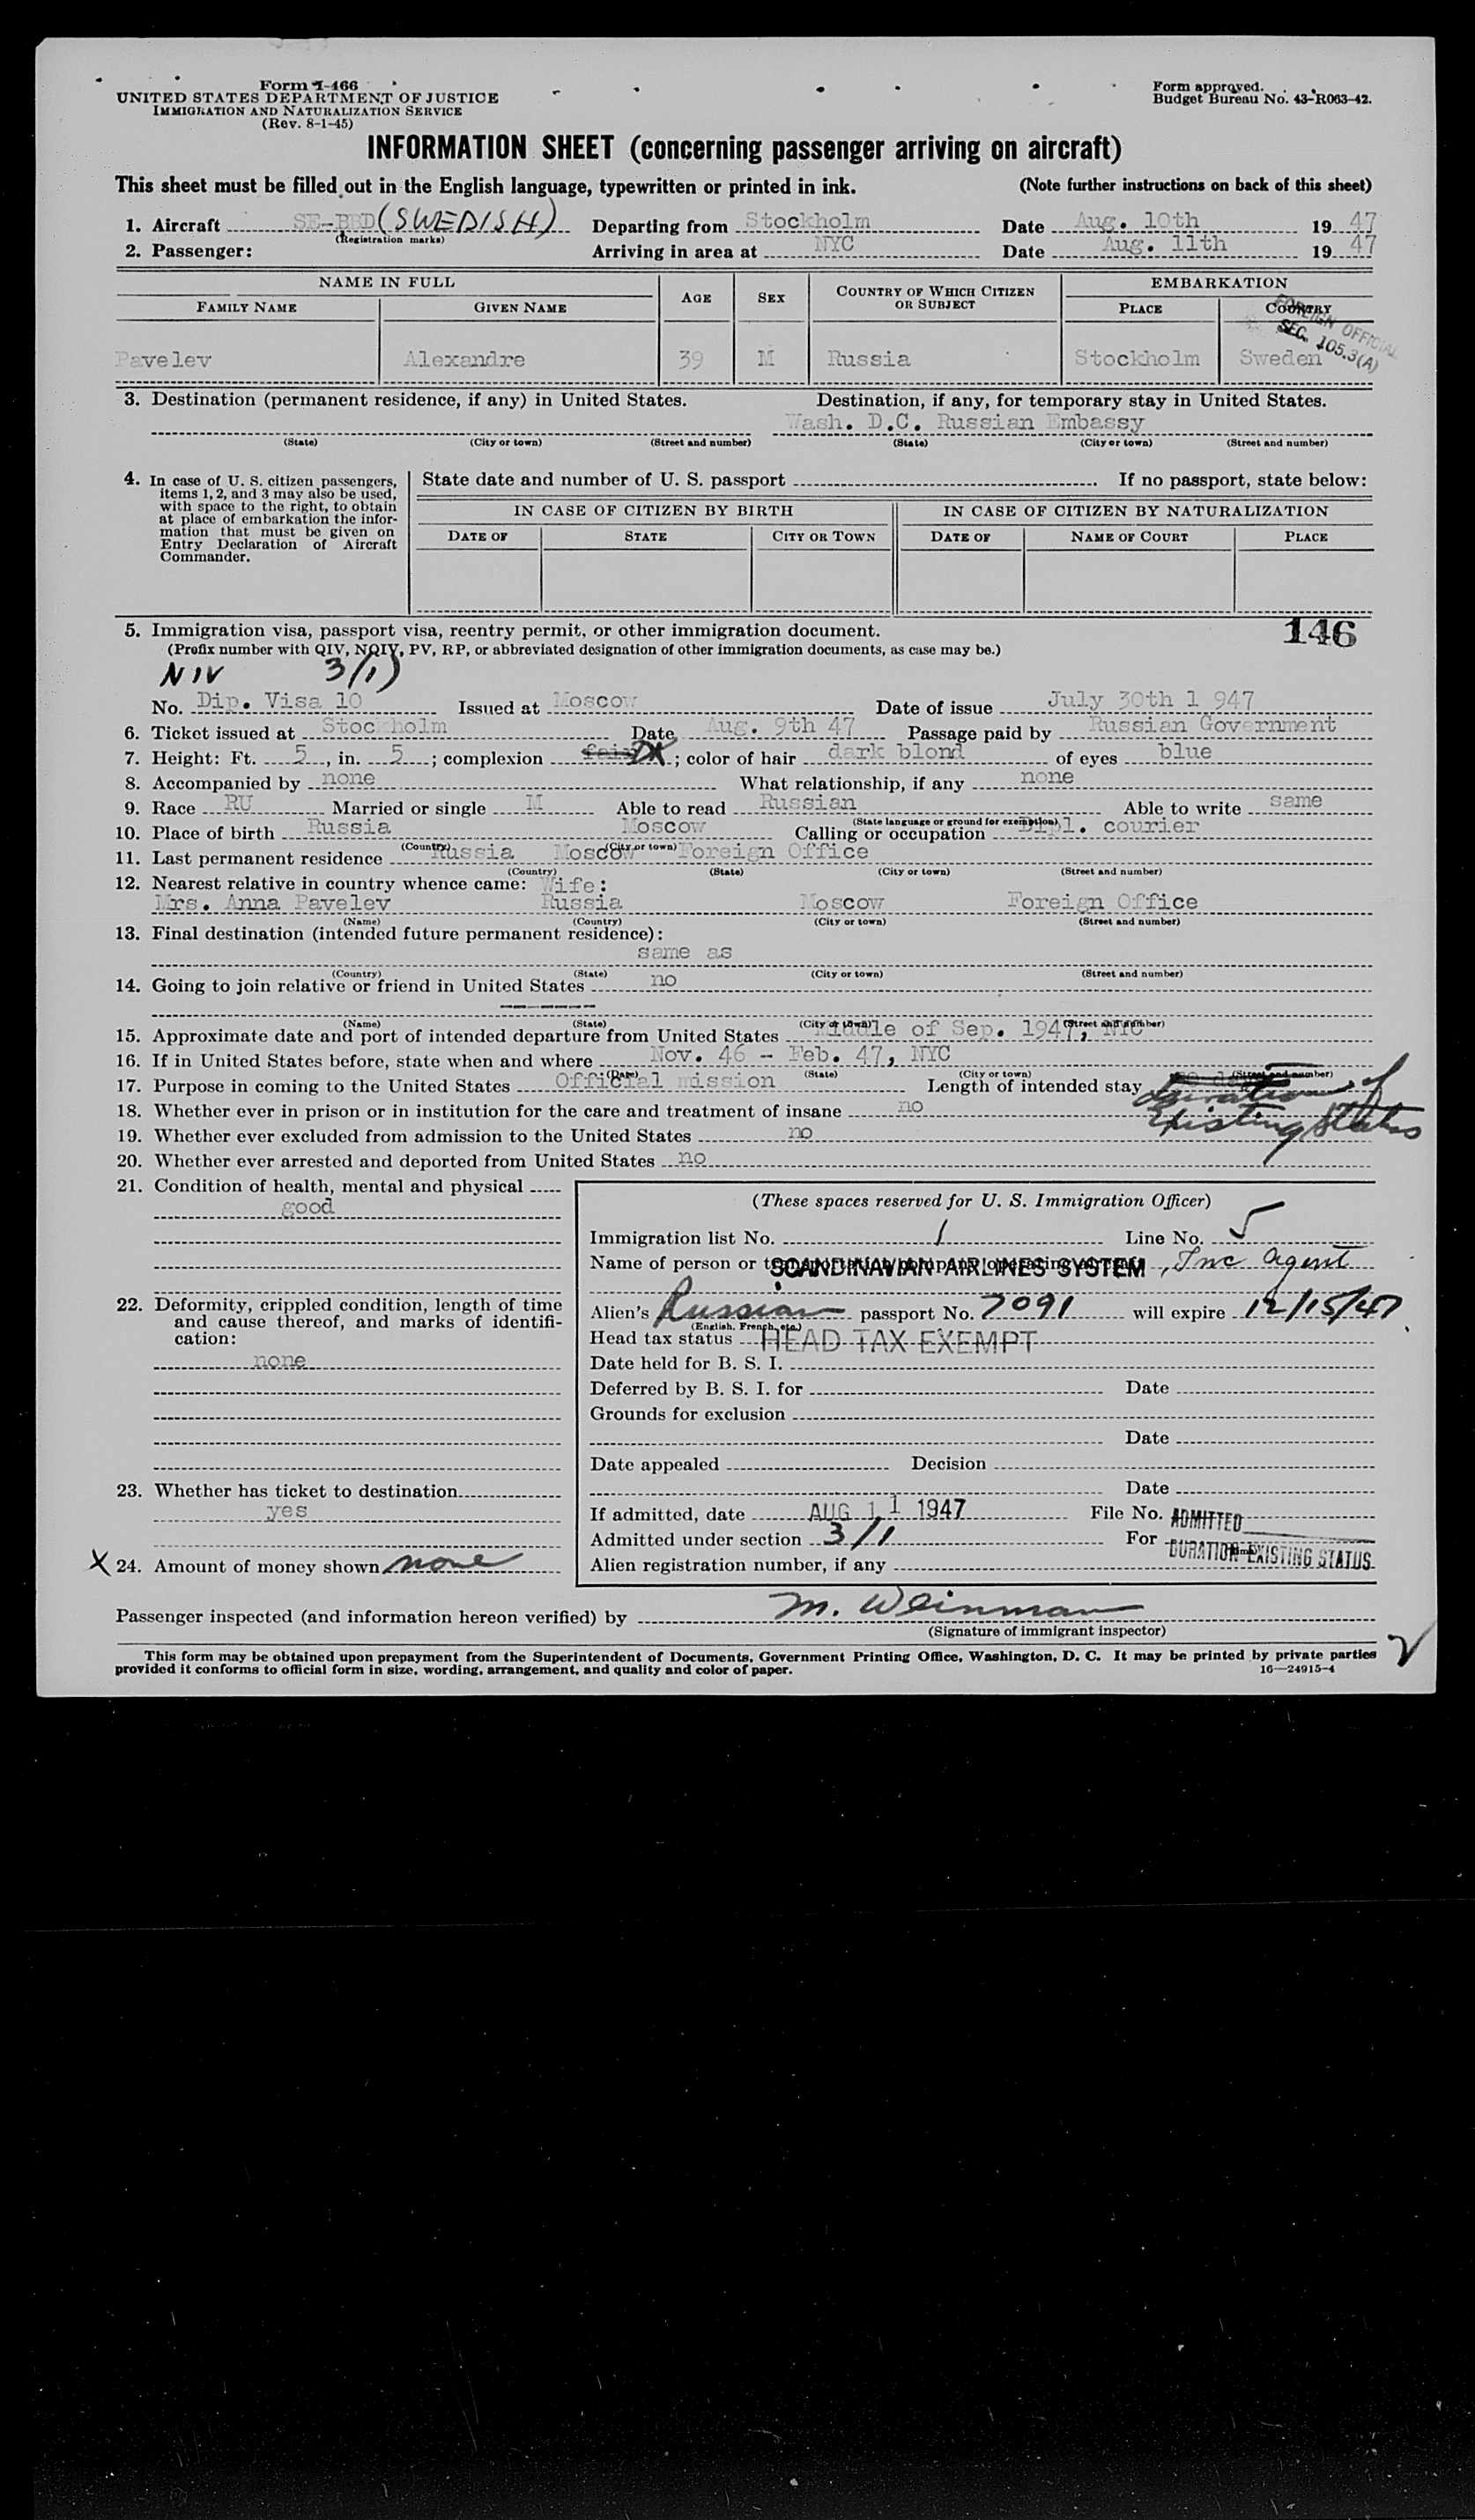 Form I-466
UNITED STATES DEPARTMENT OF JUSTICE
IMMIGRATION AND NATURALIZATION SERVICE
(Rev. 8-1-45)
Form approved.
Budget Bureau No. 43-R063-42.
INFORMATION SHEET (concerning passenger arriving on aircraft)
This sheet must be filled out in the English language, typewritten or printed in ink. (Note further instructions on back of this sheet)
1. Aircraft (SWEDISH) Departing from Stockholm Date Aug. 10th 19 47
(Registration marks)
2. Passenger: Arriving in area at NYC Date Aug. 11th 19 47
NAME IN FULL AGE SEX COUNTRY OF WHICH CITIZEN OR SUBJECT EMBARKATION
FAMILY NAME GIVEN NAME PLACE COUNTRY
FOREIGN OFFICIAL
SEC. 105.3(A)
Pavelev Alexandre 39 M Russia Stockholm Sweden
3. Destination (permanent residence, if any) in United States. Destination, if any, for temporary stay in United States.
Wash. D.C. Russian Embassy
(State) (City or town) (Street and number) (State) (City or town) (Street and number)
4. In case of U. S. citizen passengers, items 1, 2, and 3 may also be used, with space to the right, to obtain at place of embarkation the information that must be given on Entry Declaration of Aircraft Commander.
State date and number of U. S. passport If no passport, state below:
IN CASE OF CITIZEN BY BIRTH IN CASE OF CITIZEN BY NATURALIZATION
DATE OF STATE CITY OR TOWN DATE OF NAME OF COURT PLACE
5. Immigration visa, passport visa, reentry permit, or other immigration document. 146
(Prefix number with QIV, NQIV, PV, RP, or abbreviated designation of other immigration documents, as case may be.)
NIV 3/1)
No. Dip. Visa 10 Issued at Moscow Date of issue July 30th 1 947
6. Ticket issued at Stockholm Date Aug. 9th 47 Passage paid by Russian Government
7. Height: Ft. 5, in. 5; complexion fair DK; color of hair dark blond of eyes blue
8. Accompanied by none What relationship, if any none
9. Race RU Married or single M Able to read Russian Able to write same
(State language or ground for exemption)
10. Place of birth Russia Moscow Calling or occupation Dipl. courier
(Country) (City or town)
11. Last permanent residence Russia Moscow Foreign Office
(Country) (State) (City or town) (Street and number)
12. Nearest relative in country whence came: Wife:
Mrs. Anna Pavelev Russia Moscow Foreign Office
(Name) (Country) (City or town) (Street and number)
13. Final destination (intended future permanent residence):
same as
(Country) (State) (City or town) (Street and number)
14. Going to join relative or friend in United States no
(Name) (State) (City or town) (Street and number)
15. Approximate date and port of intended departure from United States Middle of Sep. 1947, NYC
16. If in United States before, state when and where Nov. 46 - Feb. 47, NYC
(Date) (State) (City or town) (Street and number)
17. Purpose in coming to the United States Official mission Length of intended stay duration of
existing status
18. Whether ever in prison or in institution for the care and treatment of insane no
19. Whether ever excluded from admission to the United States no
20. Whether ever arrested and deported from United States no
21. Condition of health, mental and physical
good
(These spaces reserved for U. S. Immigration Officer)
Immigration list No. 1 Line No. 5
Name of person or transportation company operating aircraft SCANDINAVIAN AIRLINES SYSTEM, Inc agent
22. Deformity, crippled condition, length of time and cause thereof, and marks of identification:
none
Alien's Russian passport No. 7091 will expire 12/15/47
(English, French, etc.)
Head tax status HEAD TAX EXEMPT
Date held for B. S. I.
Deferred by B. S. I. for Date
Grounds for exclusion
Date
Date appealed Decision
Date
23. Whether has ticket to destination
yes
If admitted, date AUG 11 1947 File No. ADMITTED
Admitted under section 3/1 For DURATION EXISTING STATUS
X 24. Amount of money shown none
Alien registration number, if any
Passenger inspected (and information hereon verified) by M. Weinman
(Signature of immigrant inspector)
This form may be obtained upon prepayment from the Superintendent of Documents, Government Printing Office, Washington, D. C. It may be printed by private parties
provided it conforms to official form in size, wording, arrangement, and quality and color of paper. 16—24915-4